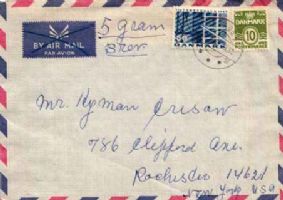 5 gram
brev
BY AIR MAIL
PAR AVION
DANMARK
10
Mr. Hyman Crisaw
786 Clifford Ave.
Rochester 14621
New York USA